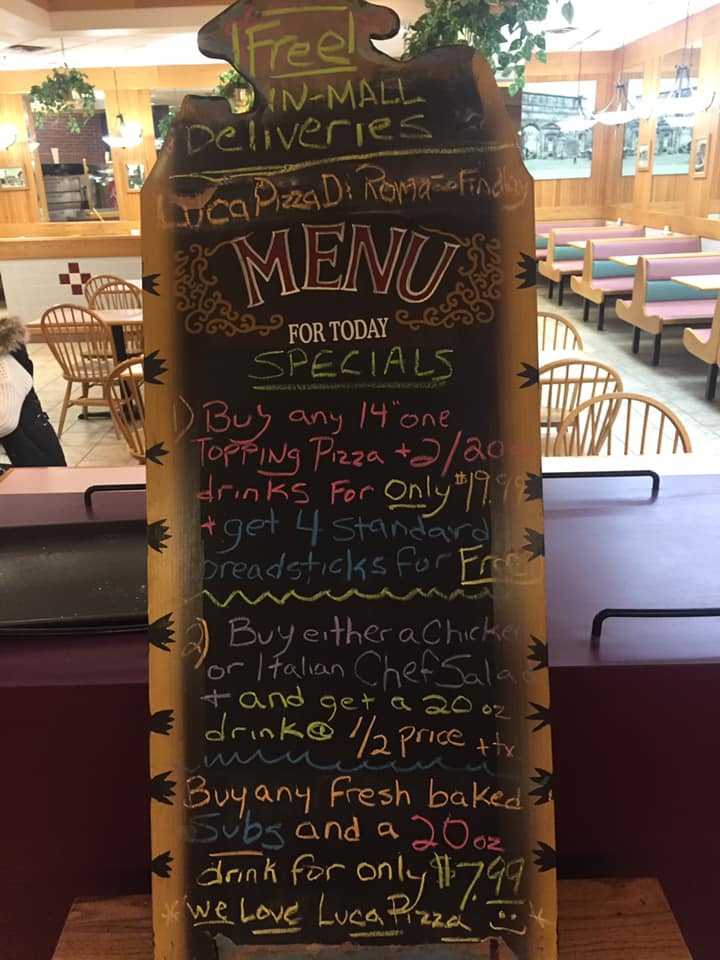 Free!
IN-MALL
Deliveries
Luca Pizza Di Roma - Findlay
MENU
FOR TODAY
SPECIALS
1) Buy any 14" one
TOPPING Pizza + 2/20
drinks For Only $19.99
+ get 4 Standard
breadsticks for Free
2) Buy either a Chicken
or Italian Chef Salad
+ and get a 20 oz
drink @ 1/2 price + tx
Buy any Fresh baked
Subs and a 20 oz
drink for only $7.99
We Love Luca Pizza